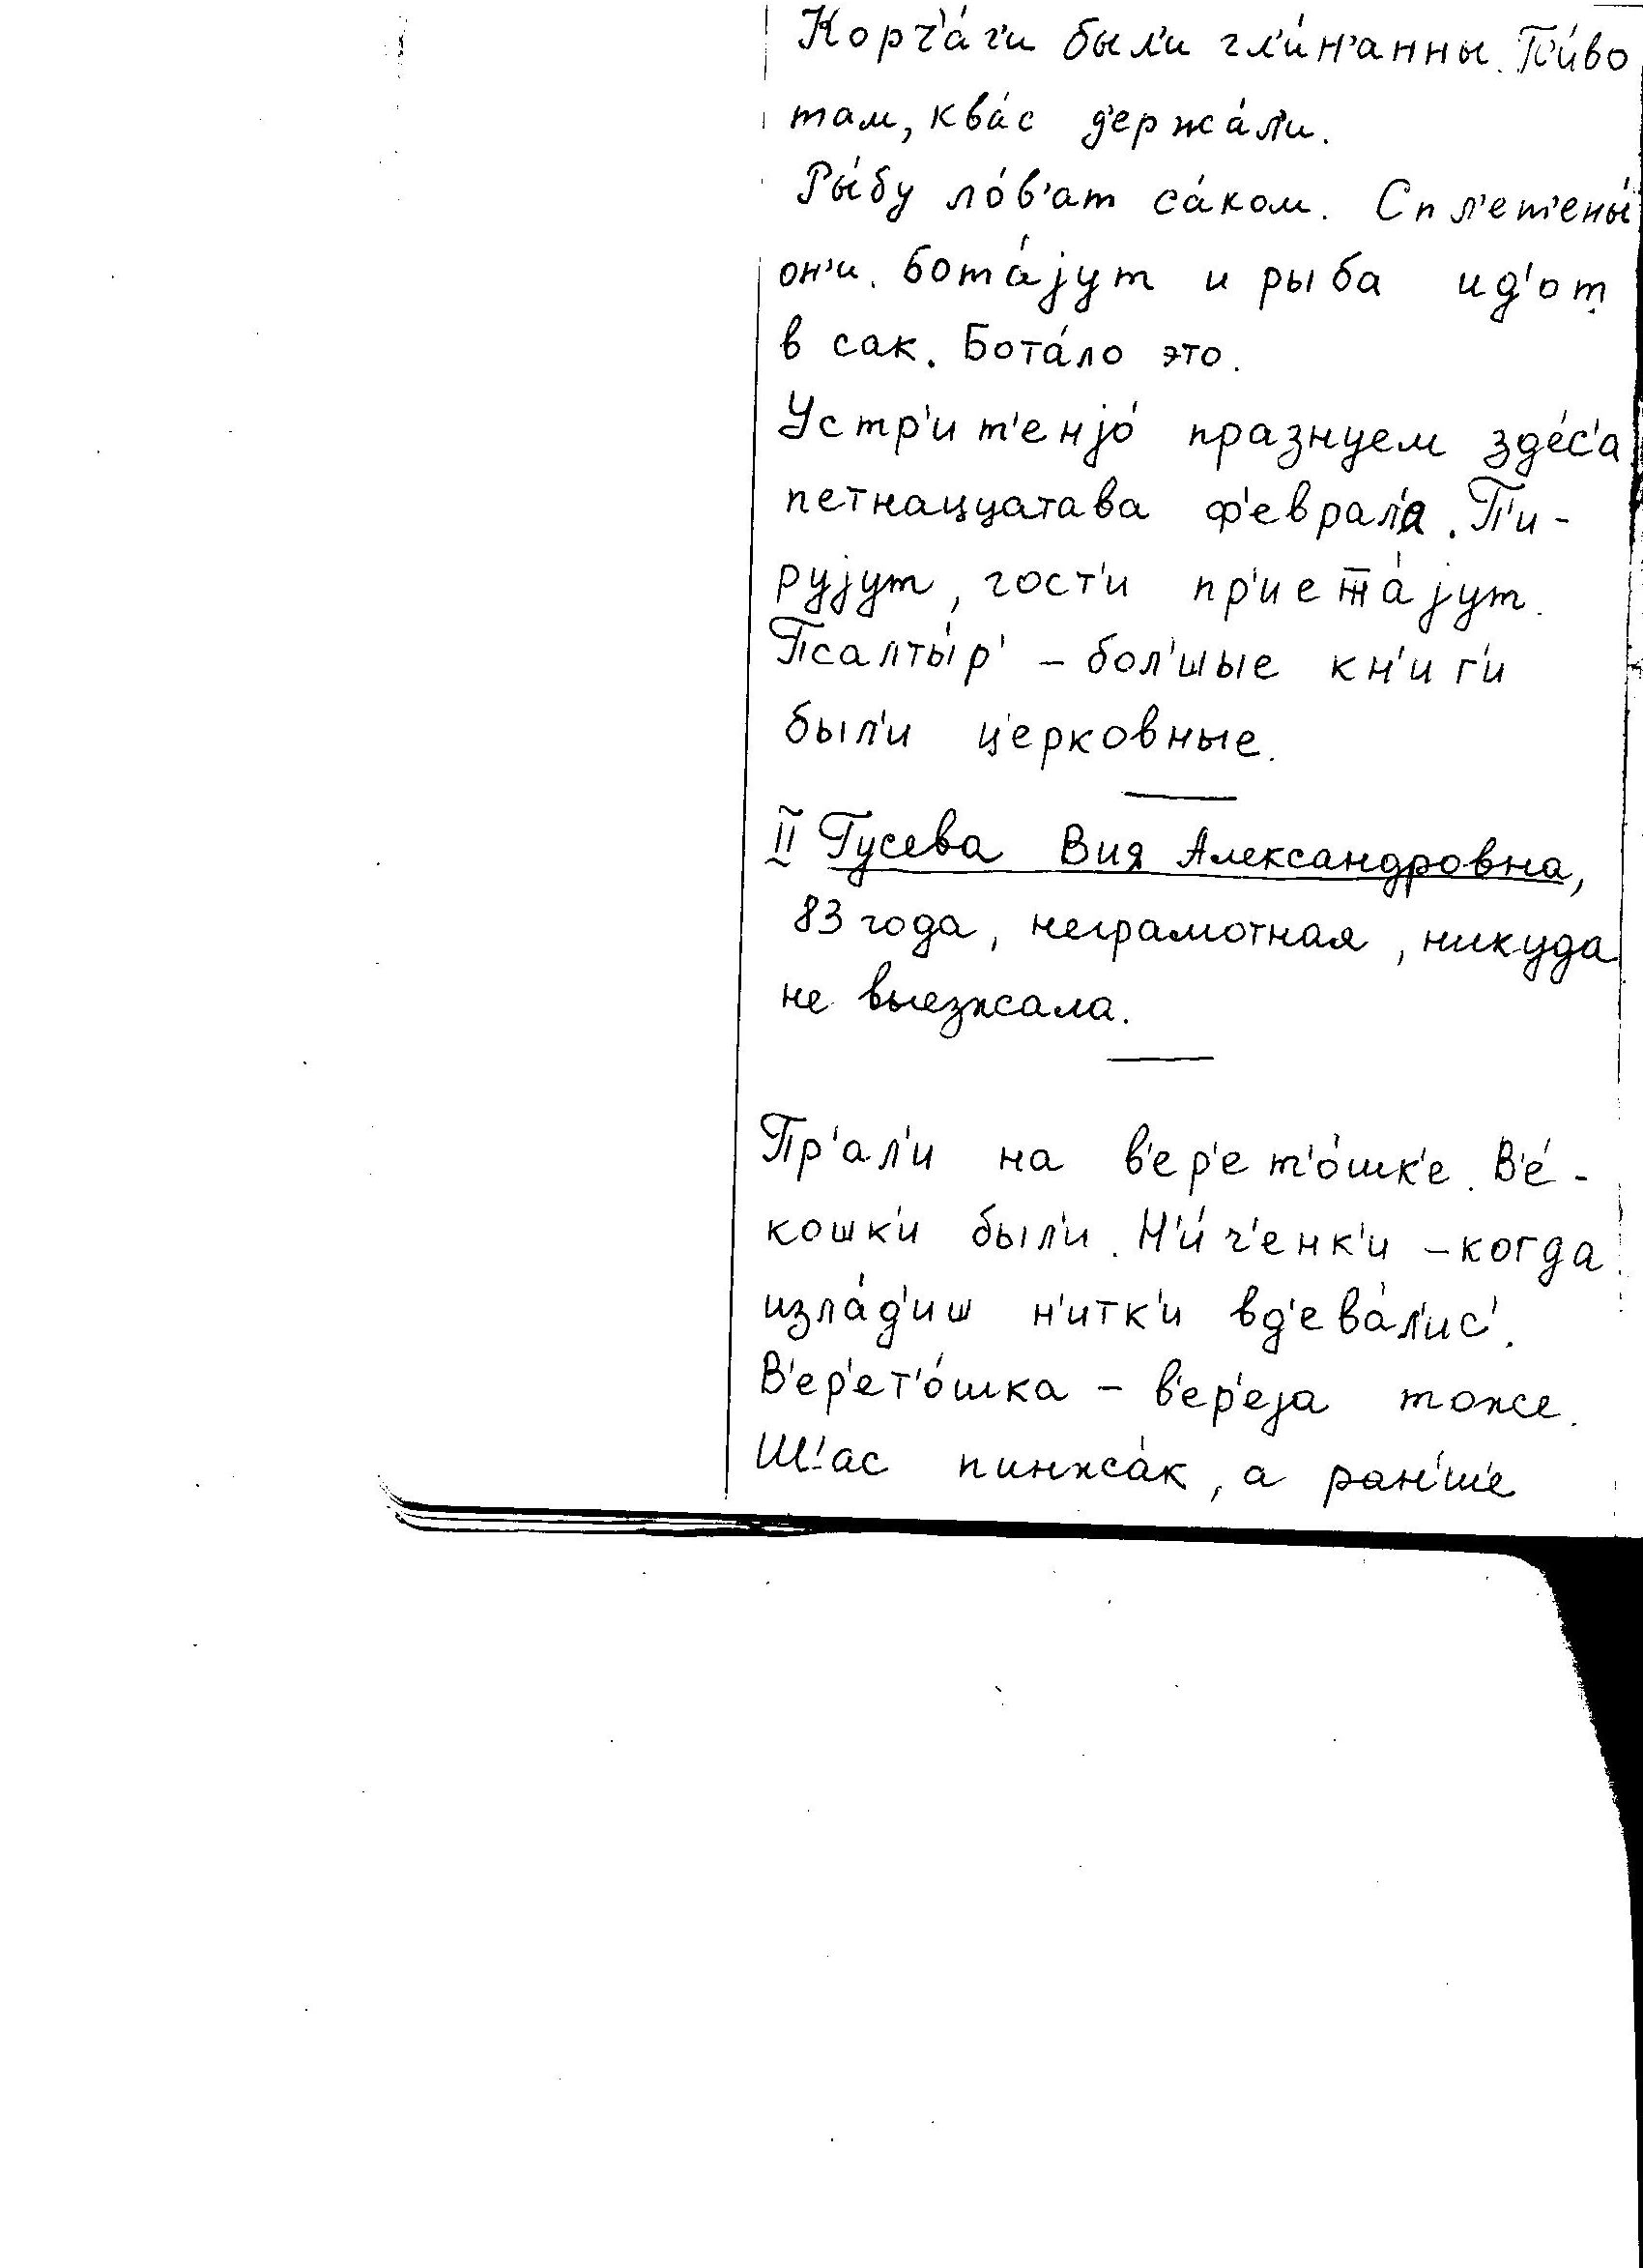 Корч'а́г'и был'и гл'и́н'анны. П'и́во
там, ква́с д'ержа́л'и.
Ры́бу ло́в'ат са́ком. Спл'ет'ены́
он'и. Бота́jут и рыба ид'от
в сак. Бота́ло это.
Устр'ит'енjо́ празнуем зде́с'а
петнаццатава ф'еврал'а. П'и-
руjут, гост'и пр'иета́jут.
Псалты́р' – бол'шые кн'иг'и
был'и ц'ерковные.
II Гусева Вия Александровна,
83 года, неграмотная, никуда
не выезжала.
Пр'ал'и на в'ер'ет'о́шк'е. В'е́-
кошк'и был'и. Н'и́ч'енк'и – когда
изла́д'иш н'итк'и вд'ева́л'ис'.
В'ер'ет'о́шка – в'ер'еjа тоже.
Ш'ас пинжа́к, а ран'ш'е